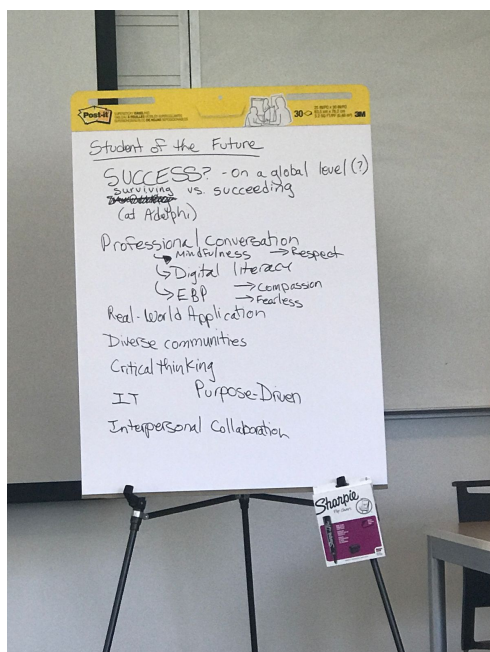 Post-it
30
3M
Student of the Future
SUCCESS? - on a global level (?)
surviving vs. succeeding
(at Adelphi)
Professional Conversation
Mindfulness → Respect
Digital literacy
EBP → Compassion
→ Fearless
Real-World Application
Diverse communities
Critical thinking
IT Purpose-Driven
Interpersonal Collaboration
Sharpie